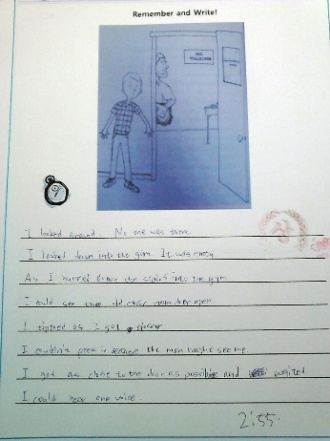 Remember and Write!
NO
9
I looked around. No one was there.
I looked down into the gym. It was empty
As I hurried down the stairs into the gym
I could see the old music room door open
I tiptoed as I got closer
I couldn't peek in because the men might see me.
I got as close to the door as possible and
I could hear one voice
2:55